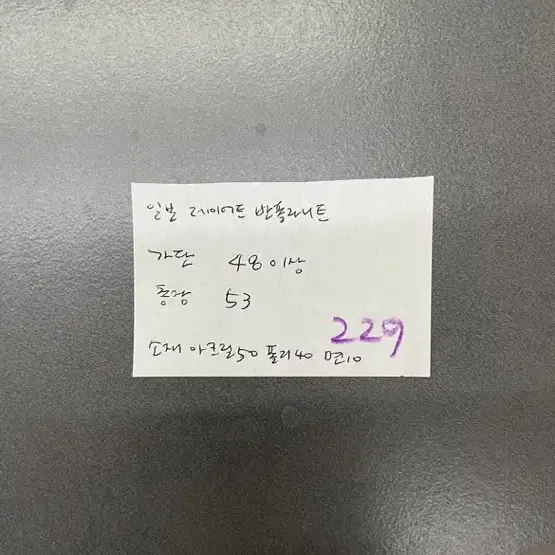 일본 레이어드 반폴라니트
가단 48이상
총장 53
229
소재 아크릴50 폴리40 면10